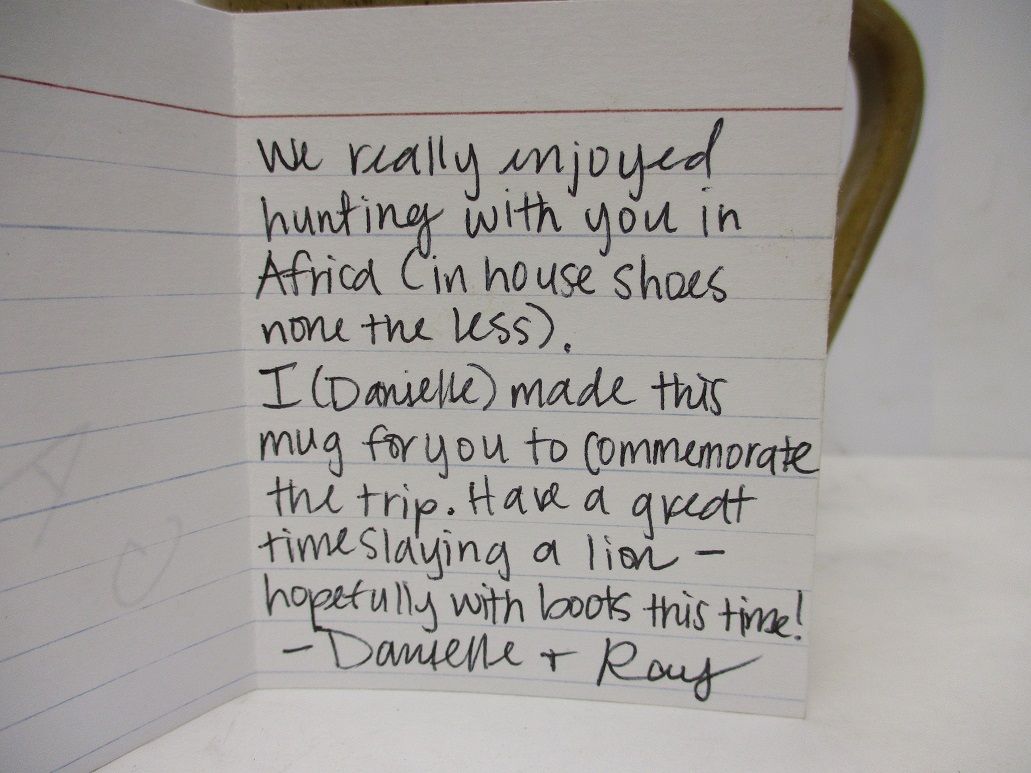 We really enjoyed
hunting with you in
Africa (in house shoes
none the less).
I (Danielle) made this
mug for you to commemorate
the trip. Have a great
time slaying a lion –
hopefully with boots this time!
– Danielle + Ray